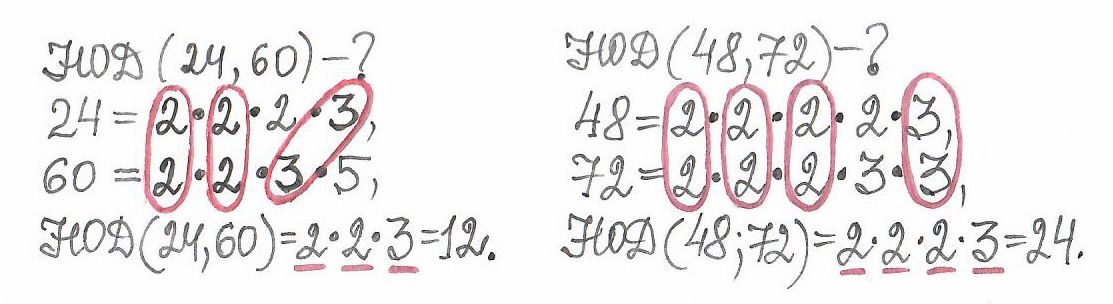 НОД (24,60)–?
24=2·2·2·3,
60=2·2·3·5,
НОД(24,60)=2·2·3=12.
НОД(48,72)–?
48=2·2·2·2·3,
72=2·2·2·3·3,
НОД(48;72)=2·2·2·3=24.